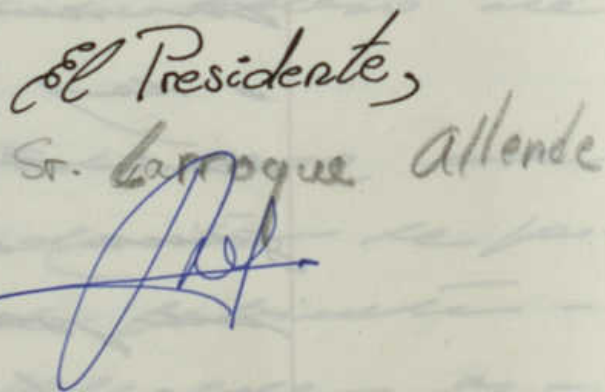 El Presidente,
Sr. Larroque Allende